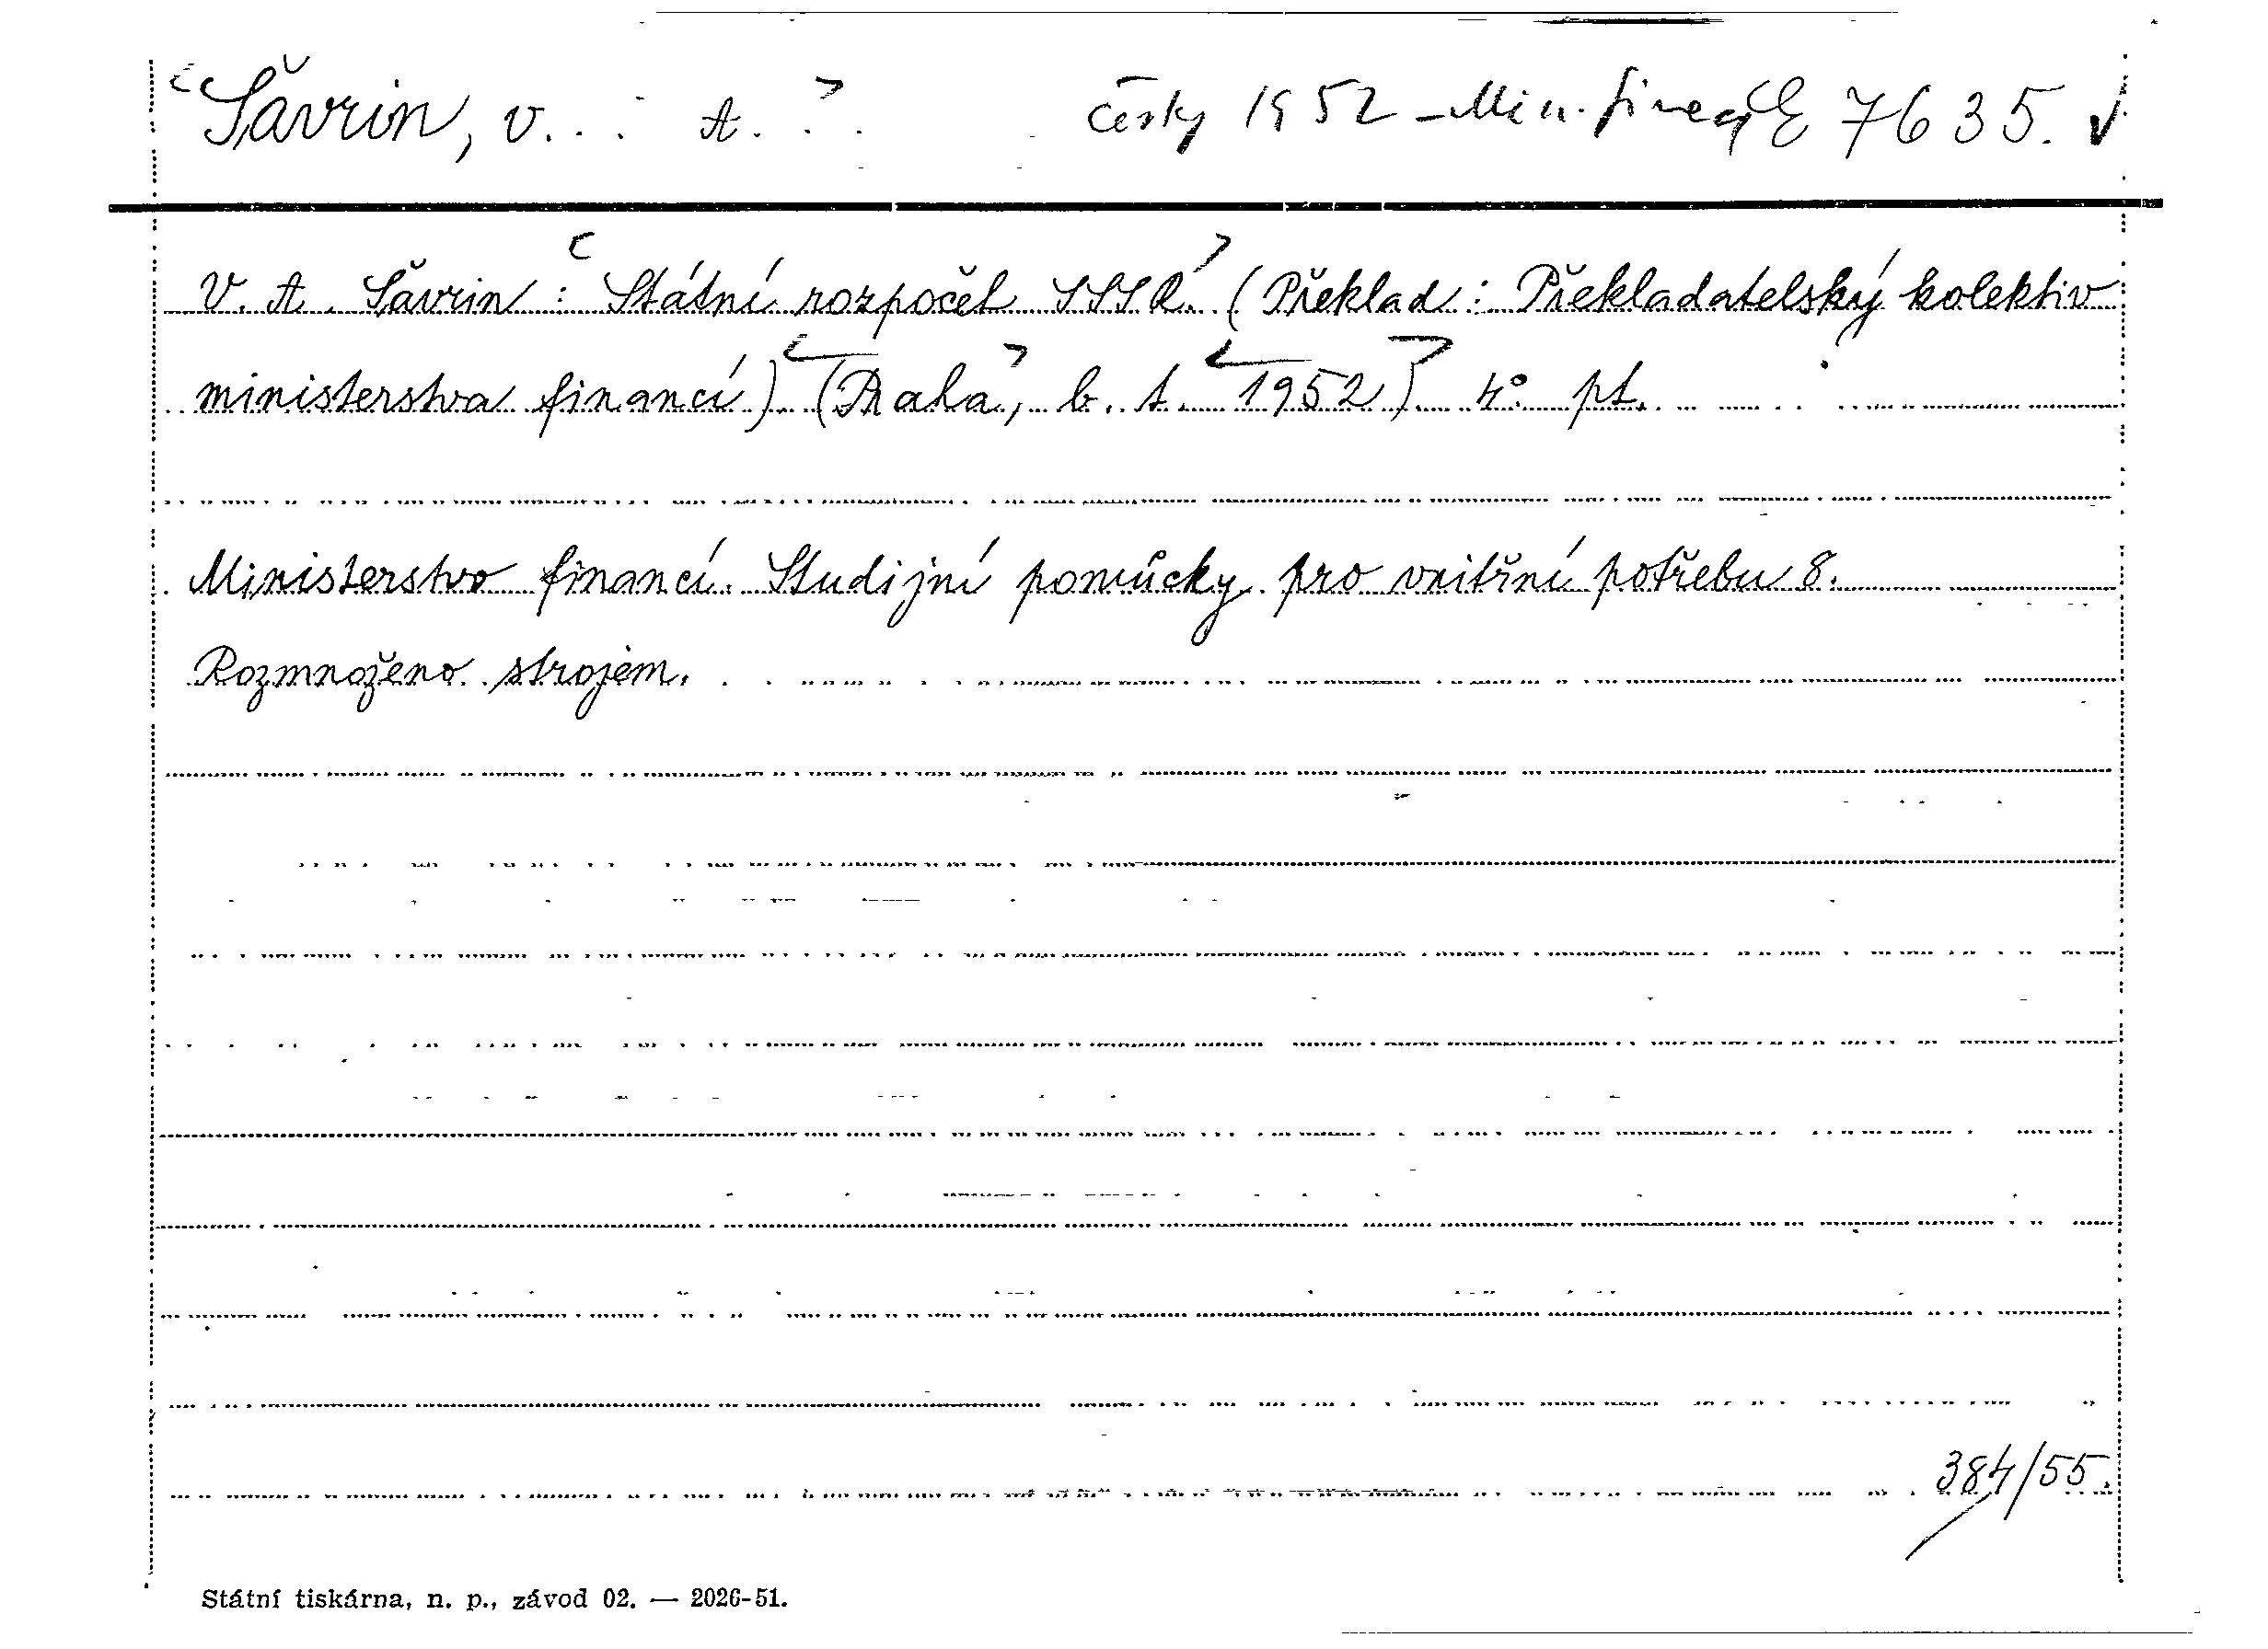 Šavrin, V... A... česky 1952 - Min. financí E 7635.
V. A. Šavrin: Státní rozpočet SSSR. (Překlad: Překladatelský kolektiv
ministerstva financí) (Praha, b. t. 1952) 4° pt.
Ministerstvo financí. Studijní pomůcky pro vnitřní potřebu 8.
Rozmnoženo strojem.
384/55.
Státní tiskárna, n. p., závod 02. — 2026-51.